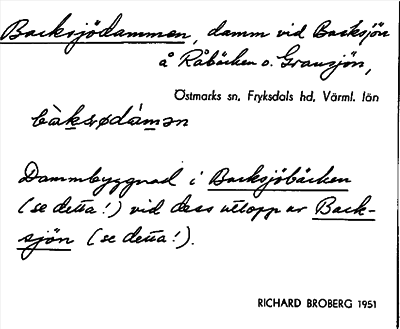 Backsjödammen, damm vid Backsjön
å Råbäcken o. Gransjön,
Östmarks sn, Fryksdals hd, Värml. län
bàksødámən
Dammbyggnad i Backsjöbäcken
(se detta!) vid dess utlopp ur Back-
sjön (se detta!).
RICHARD BROBERG 1951